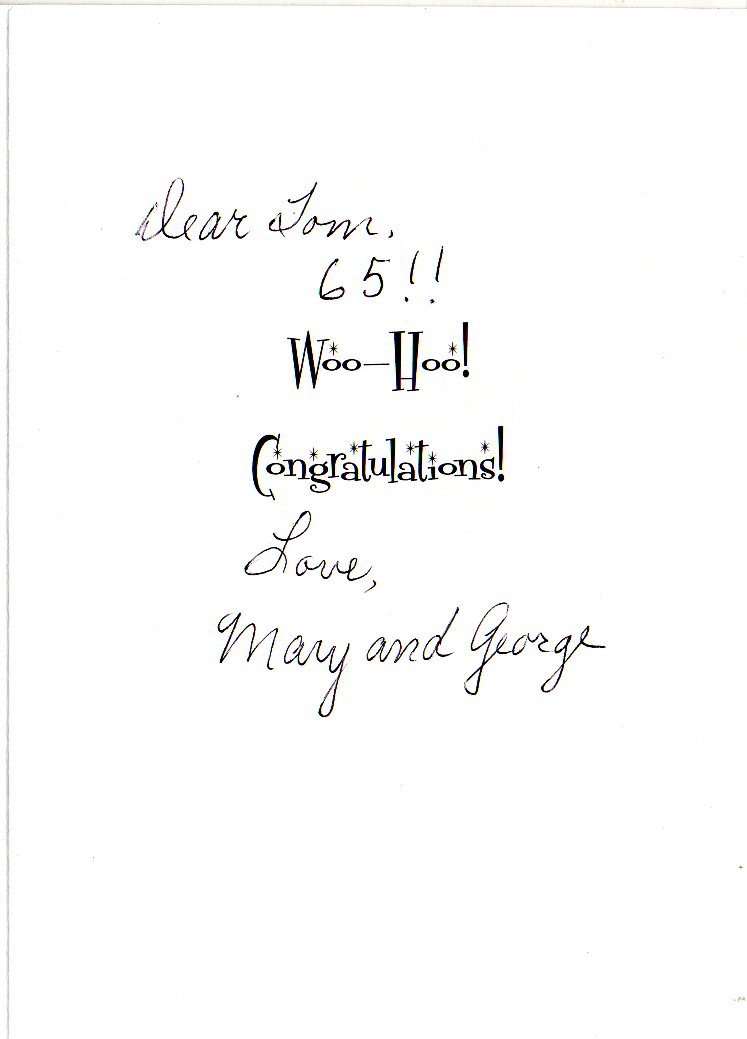 Dear Tom,
65!!
Woo-Hoo!
Congratulations!
Love,
Mary and George